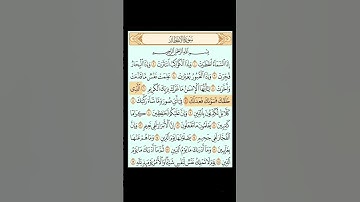 سُورَةُ الانفِطَارِ
بِسْمِ اللَّهِ الرَّحْمَٰنِ الرَّحِيمِ
إِذَا السَّمَاءُ انفَطَرَتْ ۝١ وَإِذَا الْكَوَاكِبُ انتَثَرَتْ ۝٢ وَإِذَا الْبِحَارُ
فُجِّرَتْ ۝٣ وَإِذَا الْقُبُورُ بُعْثِرَتْ ۝٤ عَلِمَتْ نَفْسٌ مَّا قَدَّمَتْ
وَأَخَّرَتْ ۝٥ يَٰأَيُّهَا الْإِنسَٰنُ مَا غَرَّكَ بِرَبِّكَ الْكَرِيمِ ۝٦ الَّذِي
خَلَقَكَ فَسَوَّىٰكَ فَعَدَلَكَ ۝٧ فِي أَيِّ صُورَةٍ مَّا شَاءَ رَكَّبَكَ ۝٨
كَلَّا بَلْ تُكَذِّبُونَ بِالدِّينِ ۝٩ وَإِنَّ عَلَيْكُمْ لَحَٰفِظِينَ ۝١٠ كِرَامًا
كَٰتِبِينَ ۝١١ يَعْلَمُونَ مَا تَفْعَلُونَ ۝١٢ إِنَّ الْأَبْرَارَ لَفِي نَعِيمٍ ۝١٣ وَإِنَّ
الْفُجَّارَ لَفِي جَحِيمٍ ۝١٤ يَصْلَوْنَهَا يَوْمَ الدِّينِ ۝١٥ وَمَا هُمْ عَنْهَا
بِغَائِبِينَ ۝١٦ وَمَا أَدْرَىٰكَ مَا يَوْمُ الدِّينِ ۝١٧ ثُمَّ مَا أَدْرَىٰكَ مَا يَوْمُ
الدِّينِ ۝١٨ يَوْمَ لَا تَمْلِكُ نَفْسٌ لِّنَفْسٍ شَيْئًا وَالْأَمْرُ يَوْمَئِذٍ لِّلَّهِ ۝١٩